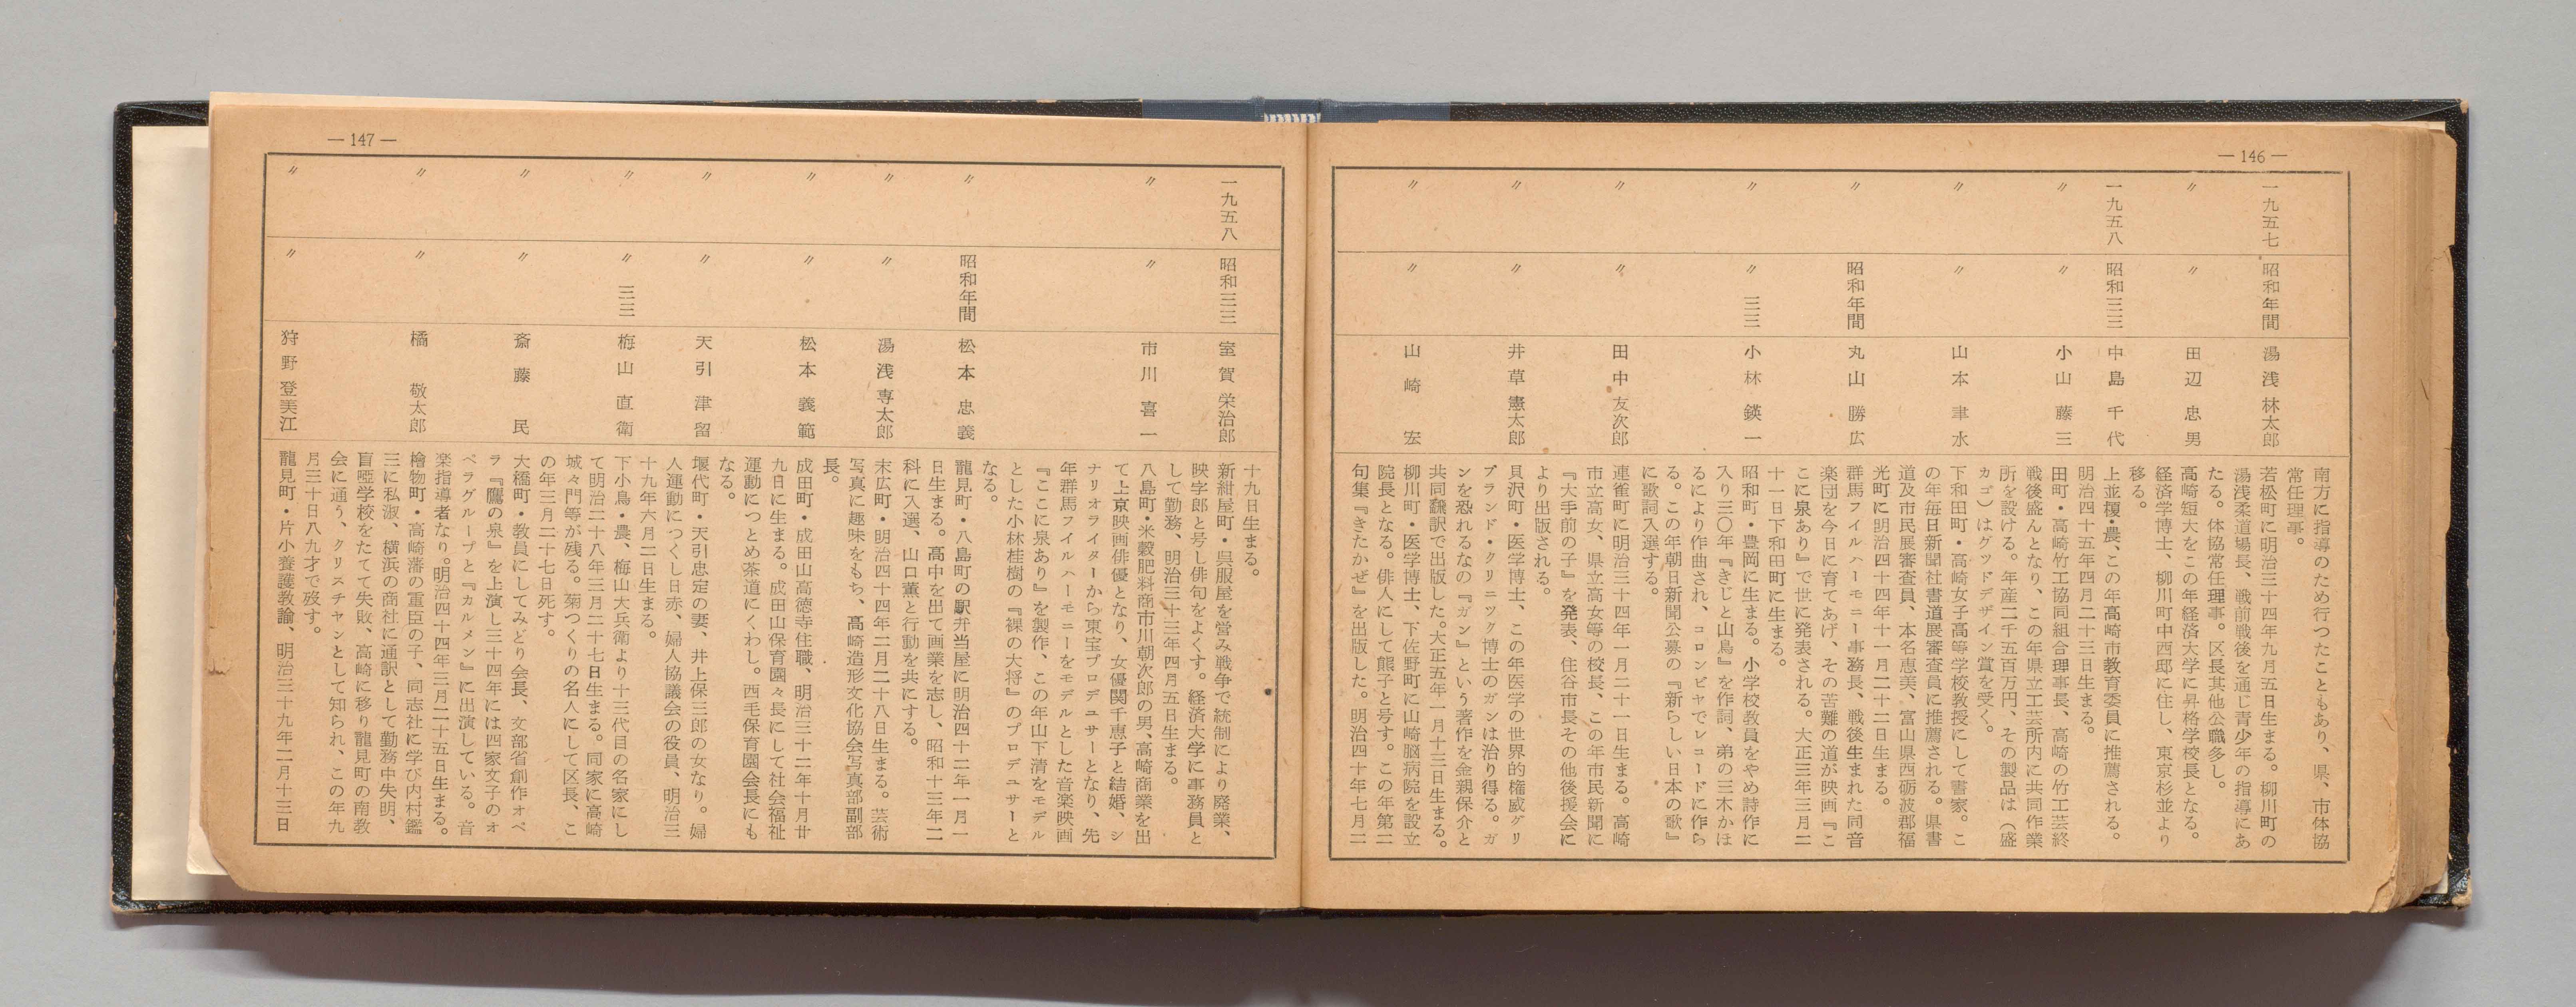 — 146 —
南方に指導のため行つたこともあり、県、市体協
常任理事。
一九五七
昭和年間
湯浅林太郎
若松町に明治三十四年九月五日生まる。柳川町の
湯浅柔道場長、戦前戦後を通じ青少年の指導にあ
たる。体協常任理事。区長其他公職多し。
〃
〃
田辺忠男
高崎短大をこの年経済大学に昇格学校長となる。
経済学博士、柳川町中西邸に住し、東京杉並より
移る。
一九五八
昭和三三
中島千代
上並榎・農、この年高崎市教育委員に推薦される。
明治四十五年四月二十三日生まる。
〃
〃
小山藤三
田町・高崎竹工協同組合理事長、高崎の竹工芸終
戦後盛んとなり、この年県立工芸所内に共同作業
所を設ける。年産二千五百万円、その製品は（盛
カゴ）はグツドデザイン賞を受く。
〃
〃
山本聿水
下和田町・高崎女子高等学校教授にして書家。こ
の年毎日新聞社書道展審査員に推薦される。県書
道及市民展審査員、本名恵美、富山県西砺波郡福
光町に明治四十四年十一月二十二日生まる。
〃
昭和年間
丸山勝広
群馬フイルハーモニー事務長、戦後生まれた同音
楽団を今日に育てあげ、その苦難の道が映画『こ
こに泉あり』で世に発表される。大正三年三月二
十一日下和田町に生まる。
〃
〃 三三
小林鍈一
昭和町・豊岡に生まる。小学校教員をやめ詩作に
入り三〇年『きじと山鳥』を作詞、弟の三木かほ
るにより作曲され、コロンビヤでレコードに作ら
る。この年朝日新聞公募の『新らしい日本の歌』
に歌詞入選する。
〃
〃
田中友次郎
連雀町に明治三十四年一月二十一日生まる。高崎
市立高女、県立高女等の校長、この年市民新聞に
『大手前の子』を発表、住谷市長その他後援会に
より出版される。
〃
〃
井草憲太郎
貝沢町・医学博士、この年医学の世界的権威グリ
ブランド・クリニツク博士のガンは治り得る。ガ
ンを恐れるなの『ガン』という著作を金親保介と
共同飜訳で出版した。大正五年一月十三日生まる。
〃
〃
山崎宏
柳川町・医学博士、下佐野町に山崎脳病院を設立
院長となる。俳人にして熊子と号す。この年第二
句集『きたかぜ』を出版した。明治四十年七月二
— 147 —
十九日生まる。
一九五八
昭和三三
室賀栄治郎
新紺屋町・呉服屋を営み戦争で統制により廃業、
映字郎と号し俳句をよくす。経済大学に事務員と
して勤務、明治三十三年四月五日生まる。
〃
〃
市川喜一
八島町・米穀肥料商市川朝次郎の男、高崎商業を出
て上京映画俳優となり、女優関千恵子と結婚、シ
ナリオライターから東宝プロデユサーとなり、先
年群馬フイルハーモニーをモデルとした音楽映画
『ここに泉あり』を製作、この年山下清をモデル
とした小林桂樹の『裸の大将』のプロデユサーと
なる。
〃
昭和年間
松本忠義
龍見町・八島町の駅弁当屋に明治四十二年一月一
日生まる。高中を出て画業を志し、昭和十三年二
科に入選、山口薫と行動を共にする。
〃
〃
湯浅専太郎
末広町・明治四十四年二月二十八日生まる。芸術
写真に趣味をもち、高崎造形文化協会写真部副部
長。
〃
〃
松本義範
成田町・成田山高徳寺住職、明治三十二年十月廿
九日に生まる。成田山保育園々長にして社会福祉
運動につとめ茶道にくわし。西毛保育園会長にも
なる。
〃
〃
天引津留
堰代町・天引忠定の妻、井上保三郎の女なり。婦
人運動につくし日赤、婦人協議会の役員、明治三
十九年六月二日生まる。
〃
〃 三三
梅山直衛
下小鳥・農、梅山大兵衛より十三代目の名家にし
て明治二十八年三月二十七日生まる。同家に高崎
城々門等が残る。菊つくりの名人にして区長、こ
の年三月二十七日死す。
〃
〃
斎藤民
大橋町・教員にしてみどり会長、文部省創作オペ
ラ『鷹の泉』を上演し三十四年には四家文子のオ
ペラグループと『カルメン』に出演している。音
楽指導者なり。明治四十四年三月二十五日生まる。
〃
〃
橘敬太郎
檜物町・高崎藩の重臣の子、同志社に学び内村鑑
三に私淑、横浜の商社に通訳として勤務中失明、
盲啞学校をたてて失敗、高崎に移り龍見町の南教
会に通う、クリスチャンとして知られ、この年九
月三十日八九才で歿す。
〃
〃
狩野登美江
龍見町・片小養護教諭、明治三十九年二月十三日